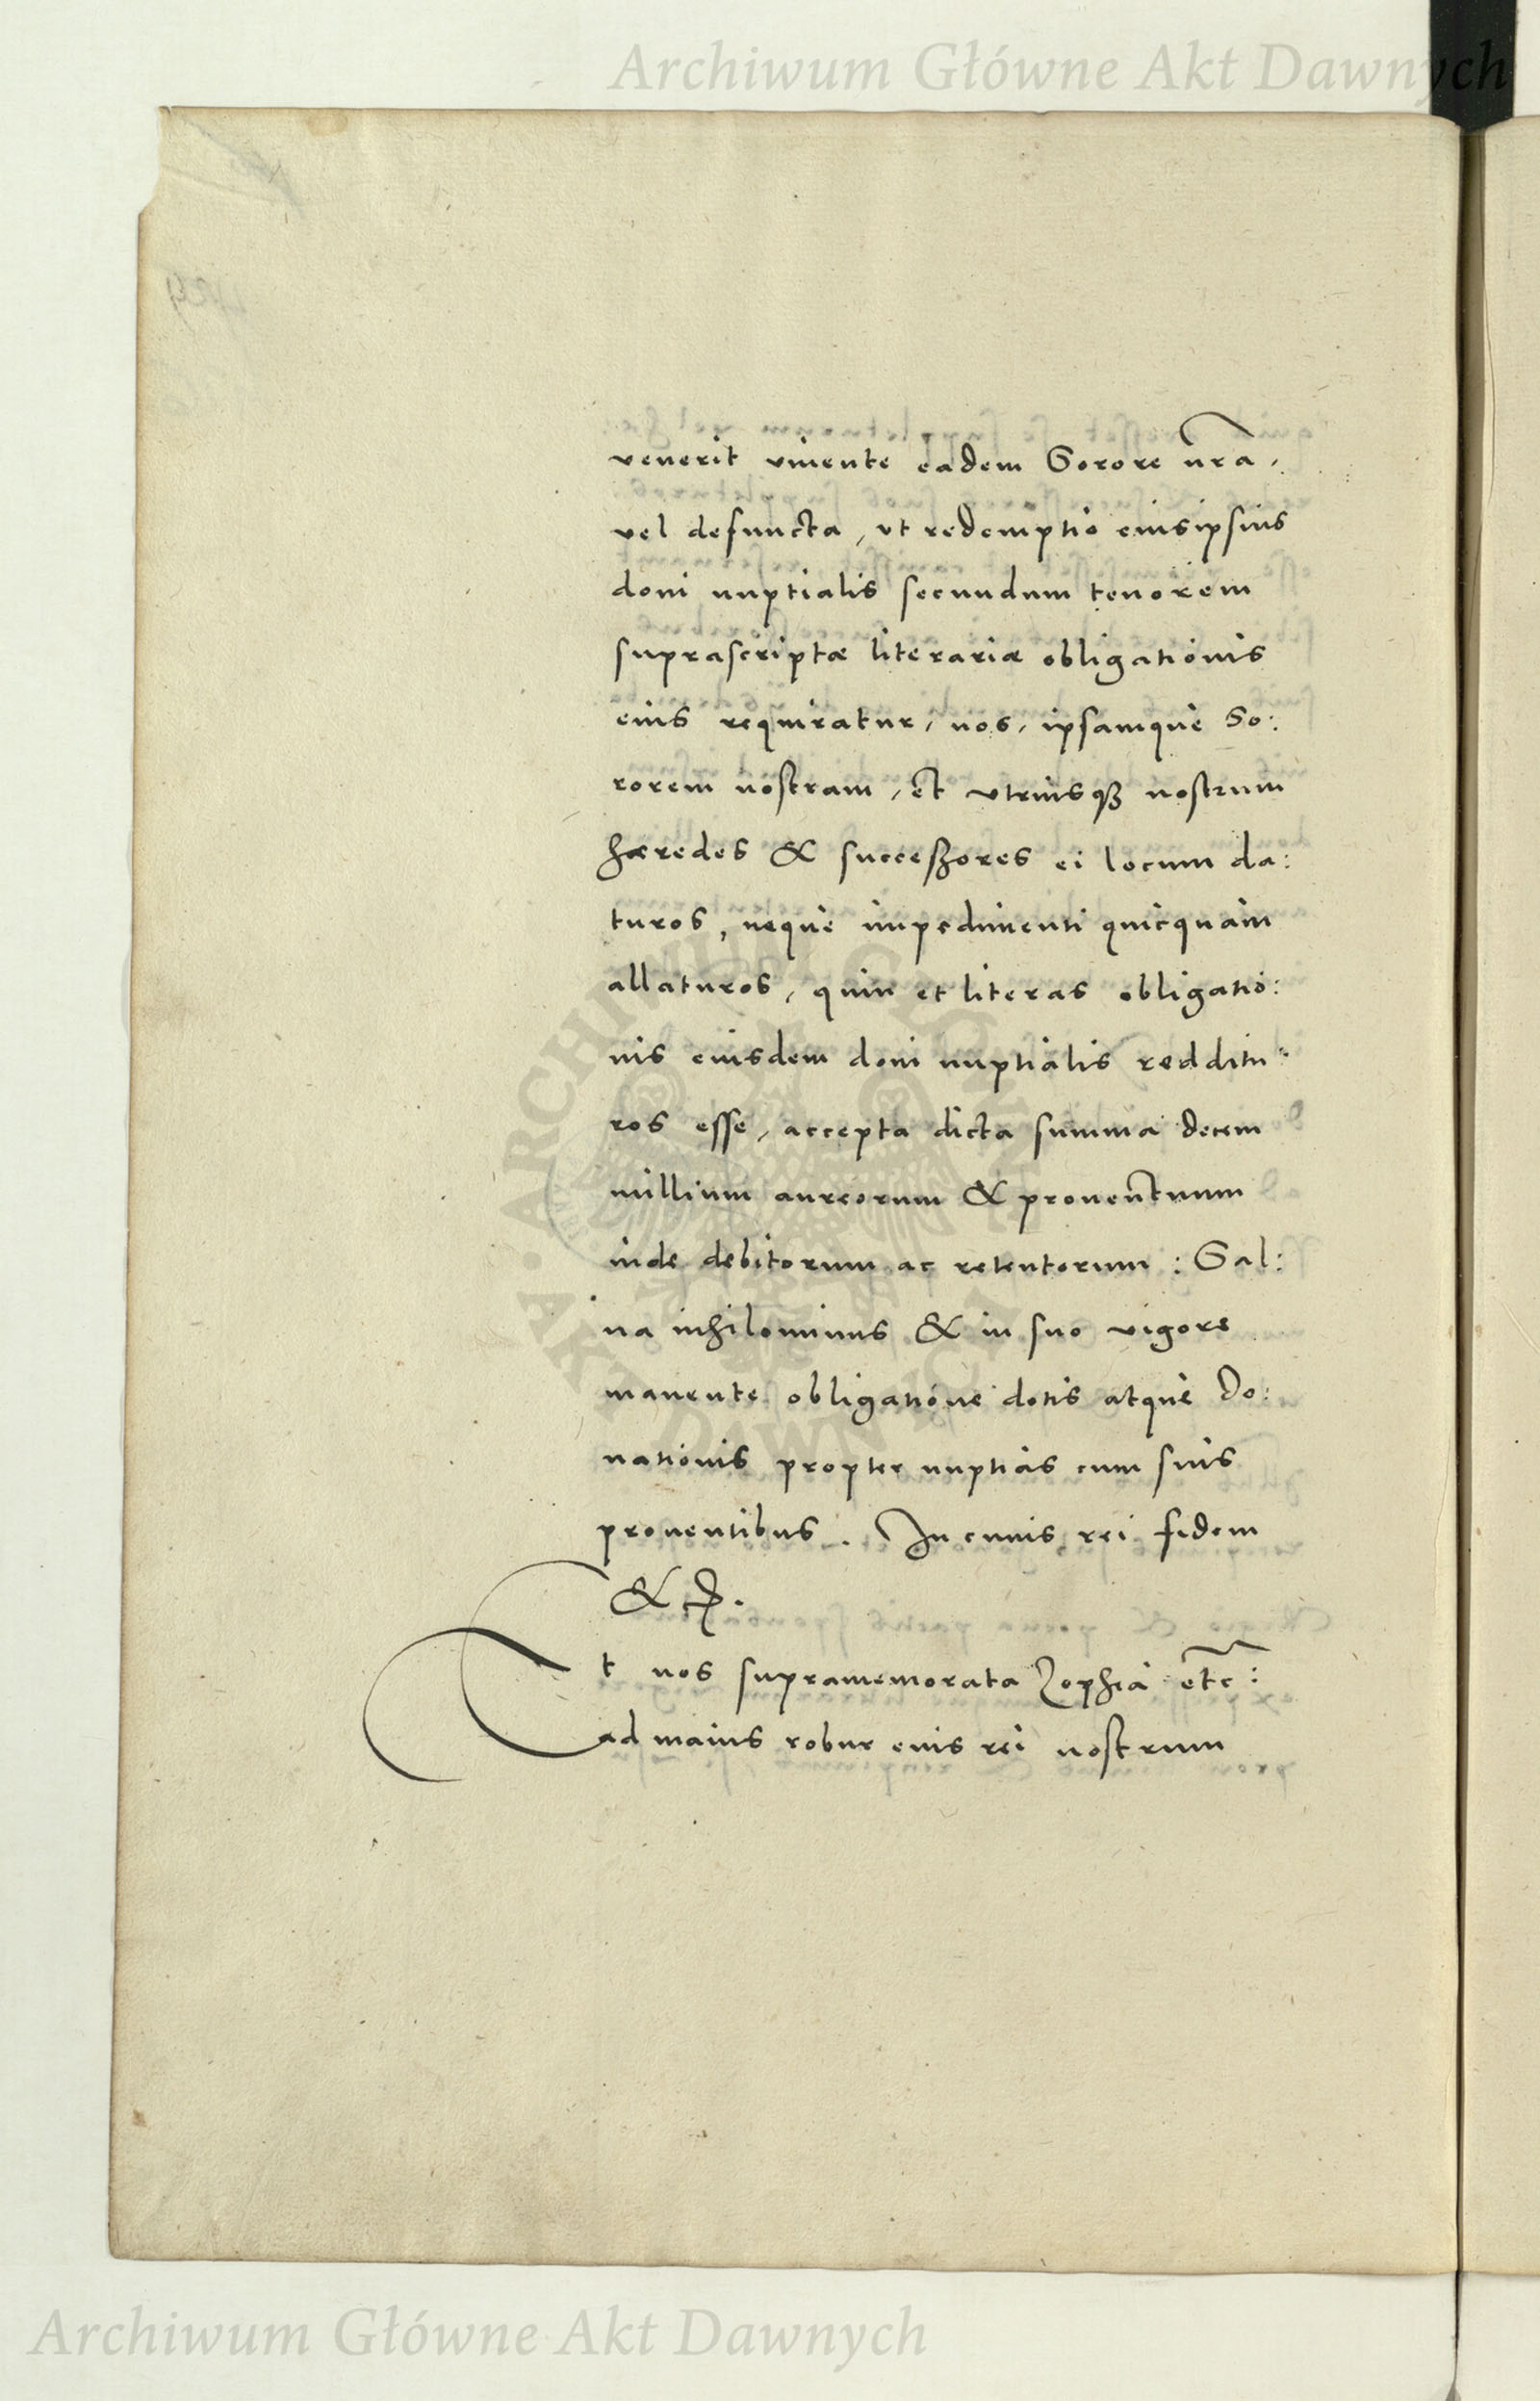 Archiwum Główne Akt Dawnych
venerit viuente eadem Sorore nr̃a,
vel defuncta, vt redemptio eiusipsius
doni nuptialis secundum tenorem
suprascriptæ literariæ obligationis
eius requiratur, nos, ipsamque So:
rorem nostram, et vtriusqꝫ nostrum
hæredes & successores ei locum da:
turos, neque impedimenti quicquam
allaturos, quin et literas obligatio:
nis eiusdem doni nuptialis redditu:
ros esse, accepta dicta summa decem
millium aureorum & prouentuum
inde debitorum ac retentorum: Sal:
ua nihilominus & in suo vigore
manente obligatione dotis atque Do:
nationis propter nuptias cum suis
prouentibus. In cuius rei fidem
&c.
Et nos supramemorata Zophia etc:
ad maius robur eius rei nostrum
ARCHIWUM GŁÓWNE AKT DAWNYCH
Archiwum Główne Akt Dawnych